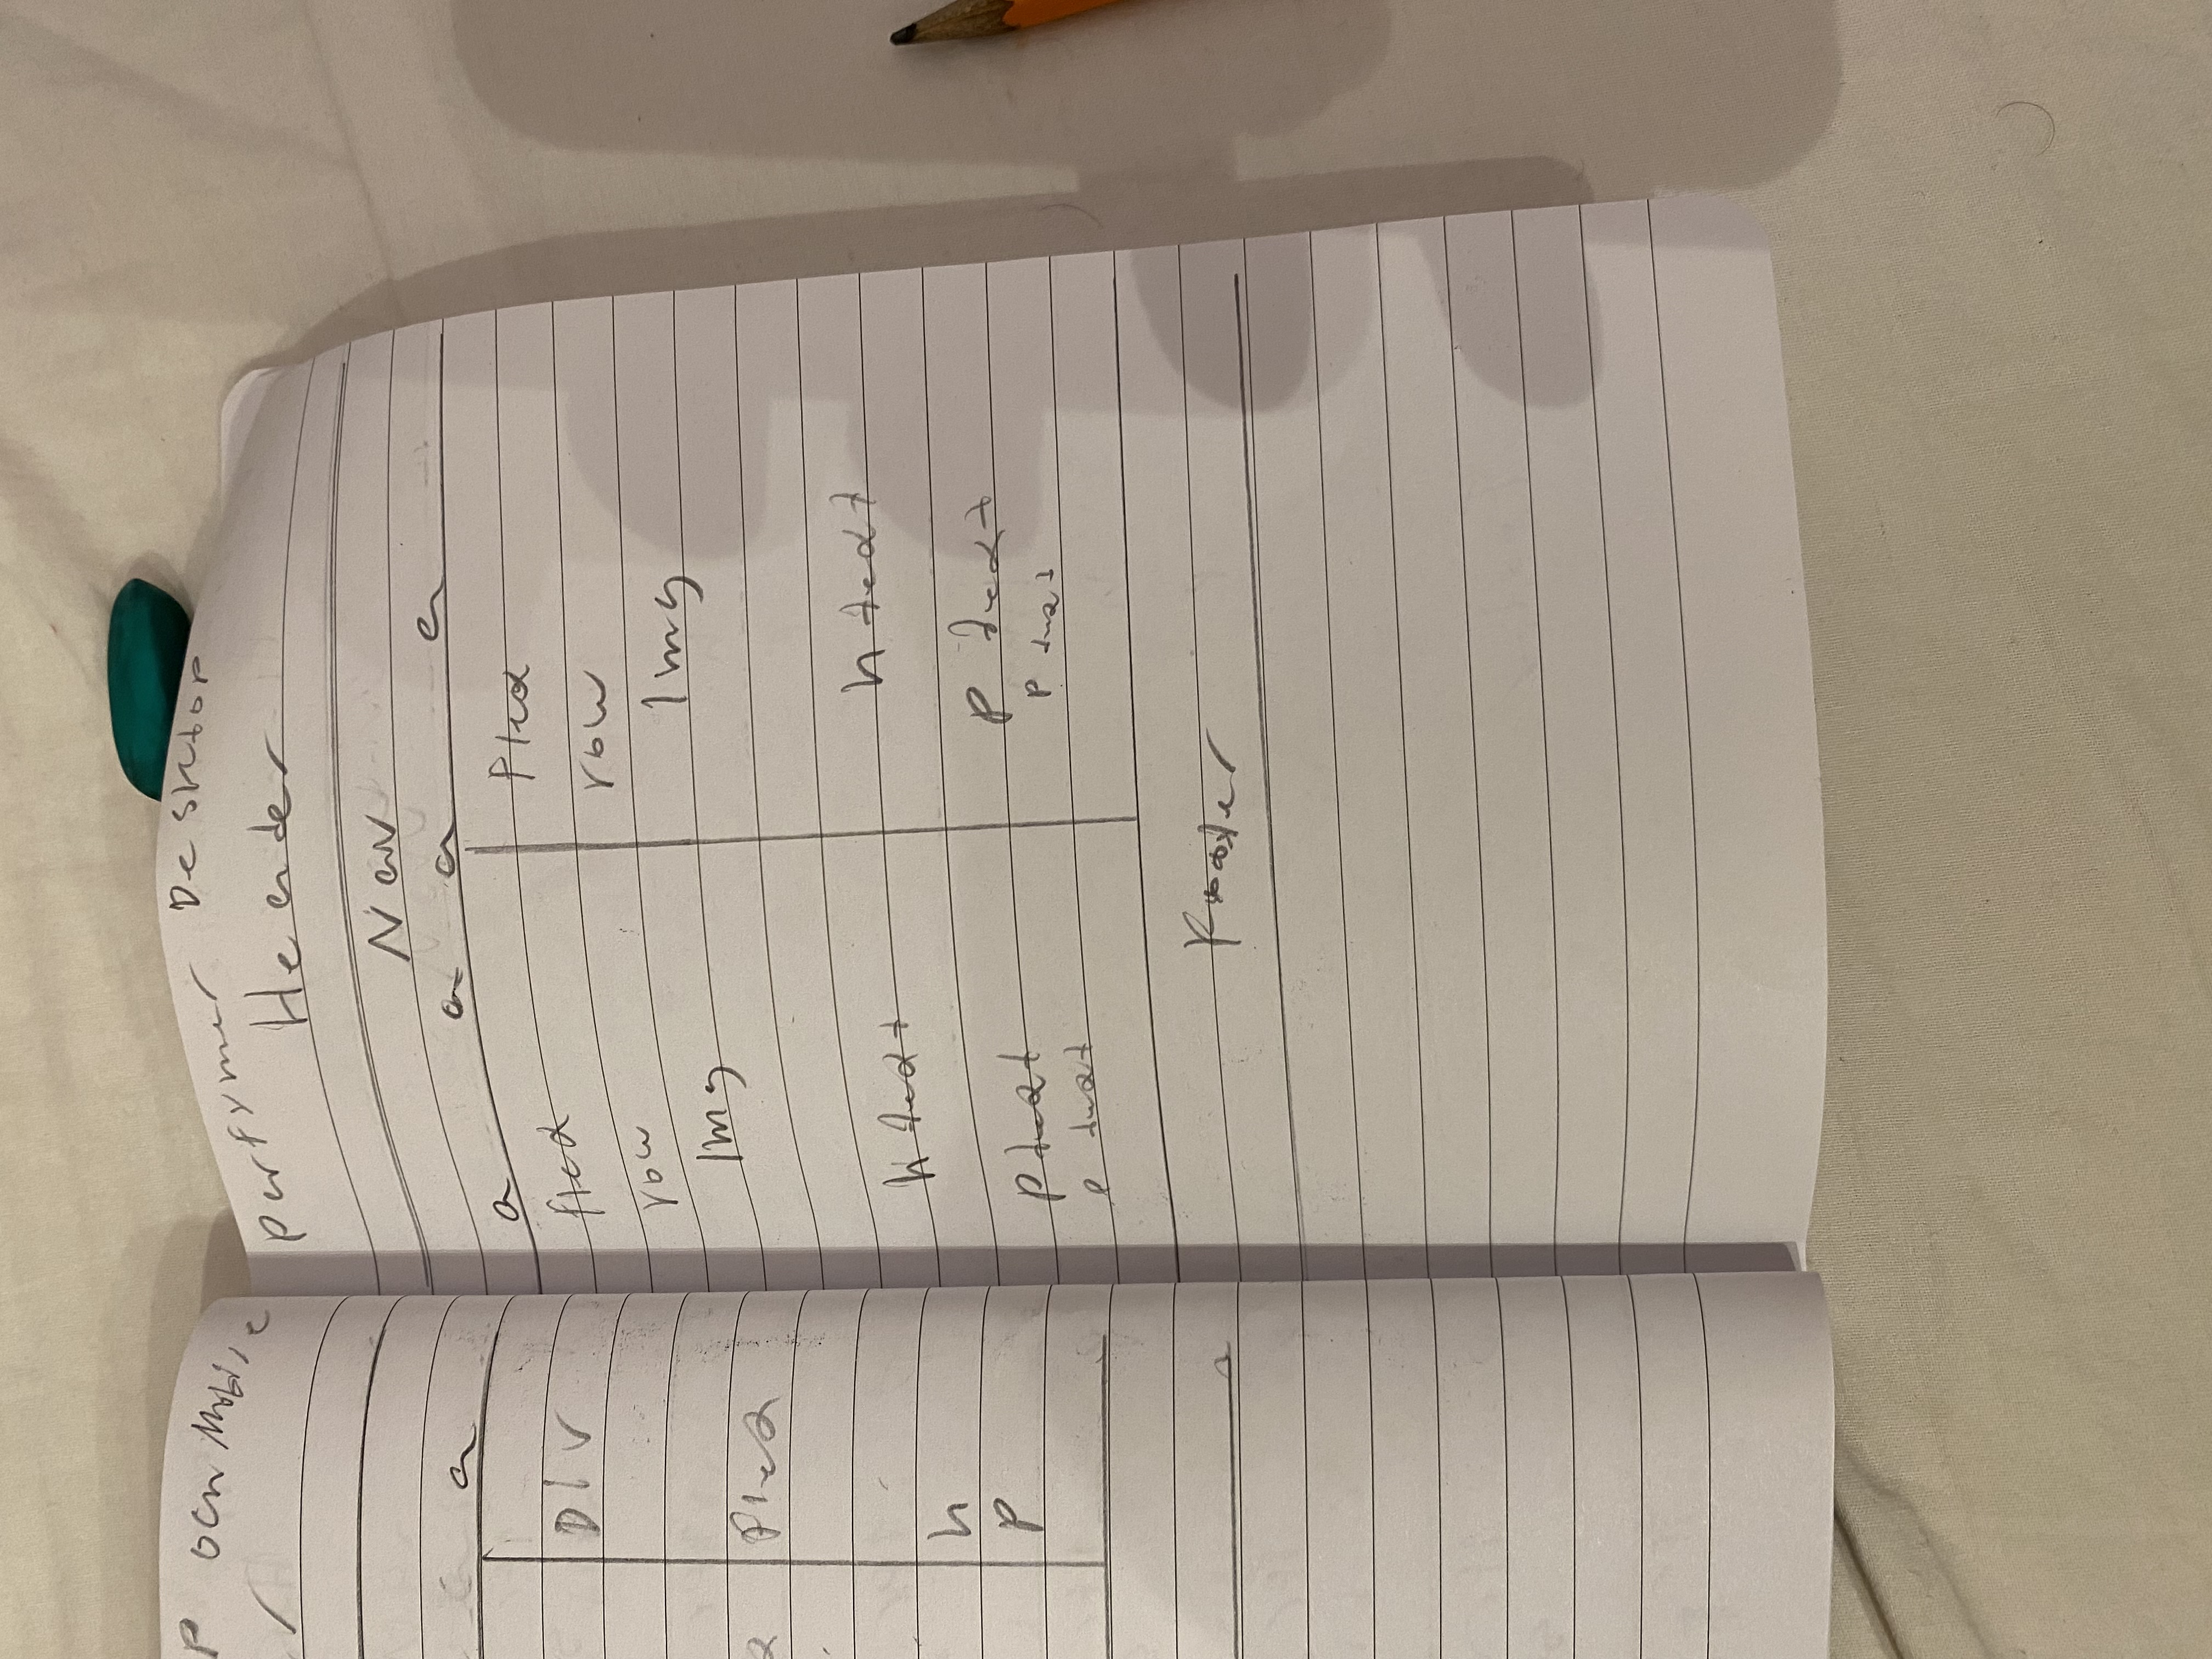 P och Mobile
r
a
DIV
Flex
h
p
a
Parfymer Desktop
Header
Nav
a a a a
flex
row
Img
h text
p text
p text
Flex
row
Img
h text
p text
p text
Footer